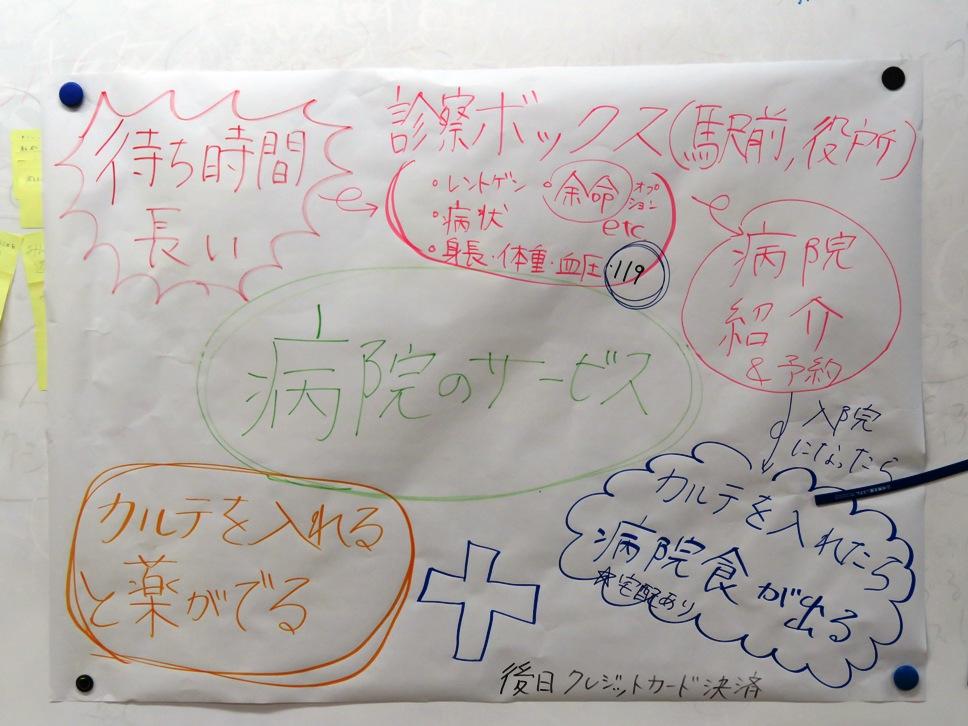 待ち時間
長い
診察ボックス(駅前,役所)
・レントゲン
・病状
・身長・体重・血圧
・余命
オプション
etc
・119
病院
紹介
&予約
病院のサービス
入院
になったら
カルテを入れたら
病院食が出る
※宅配あり
カルテを入れる
と薬がでる
後日クレジットカード決済